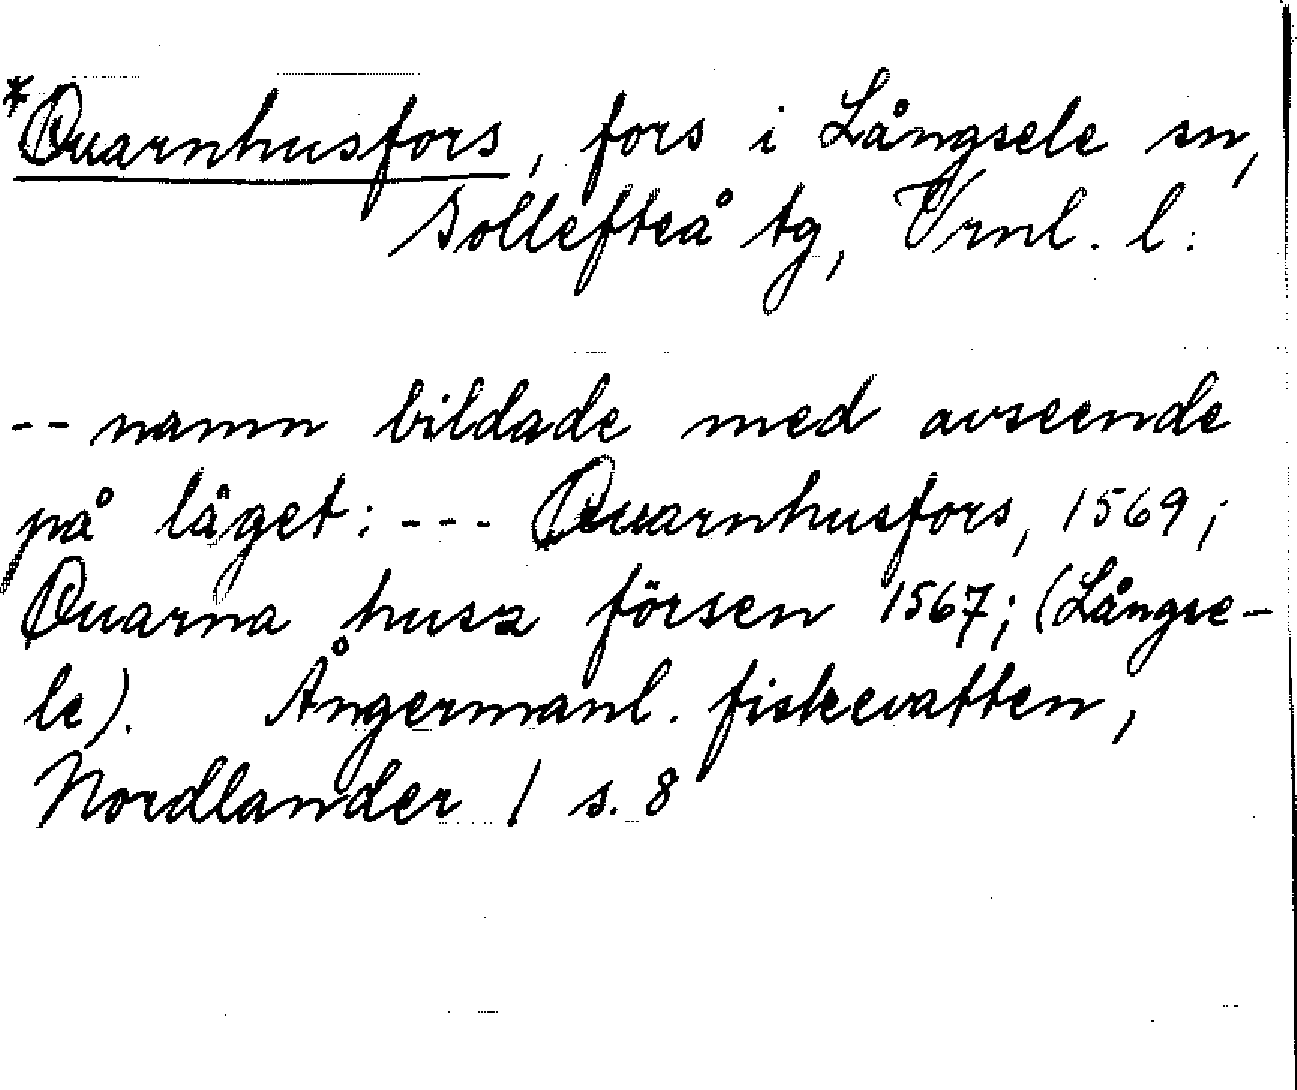 *Quarnhusfors, fors i Långsele sn,
Sollefteå tg, Vrnl. l.
-- namn bildade med avseende
på läget: --- Quarnhusfors, 1569;
Quarna husz försen 1567; (Långse-
le). Ångermanl. fiskevatten,
Nordlander 1 s. 8